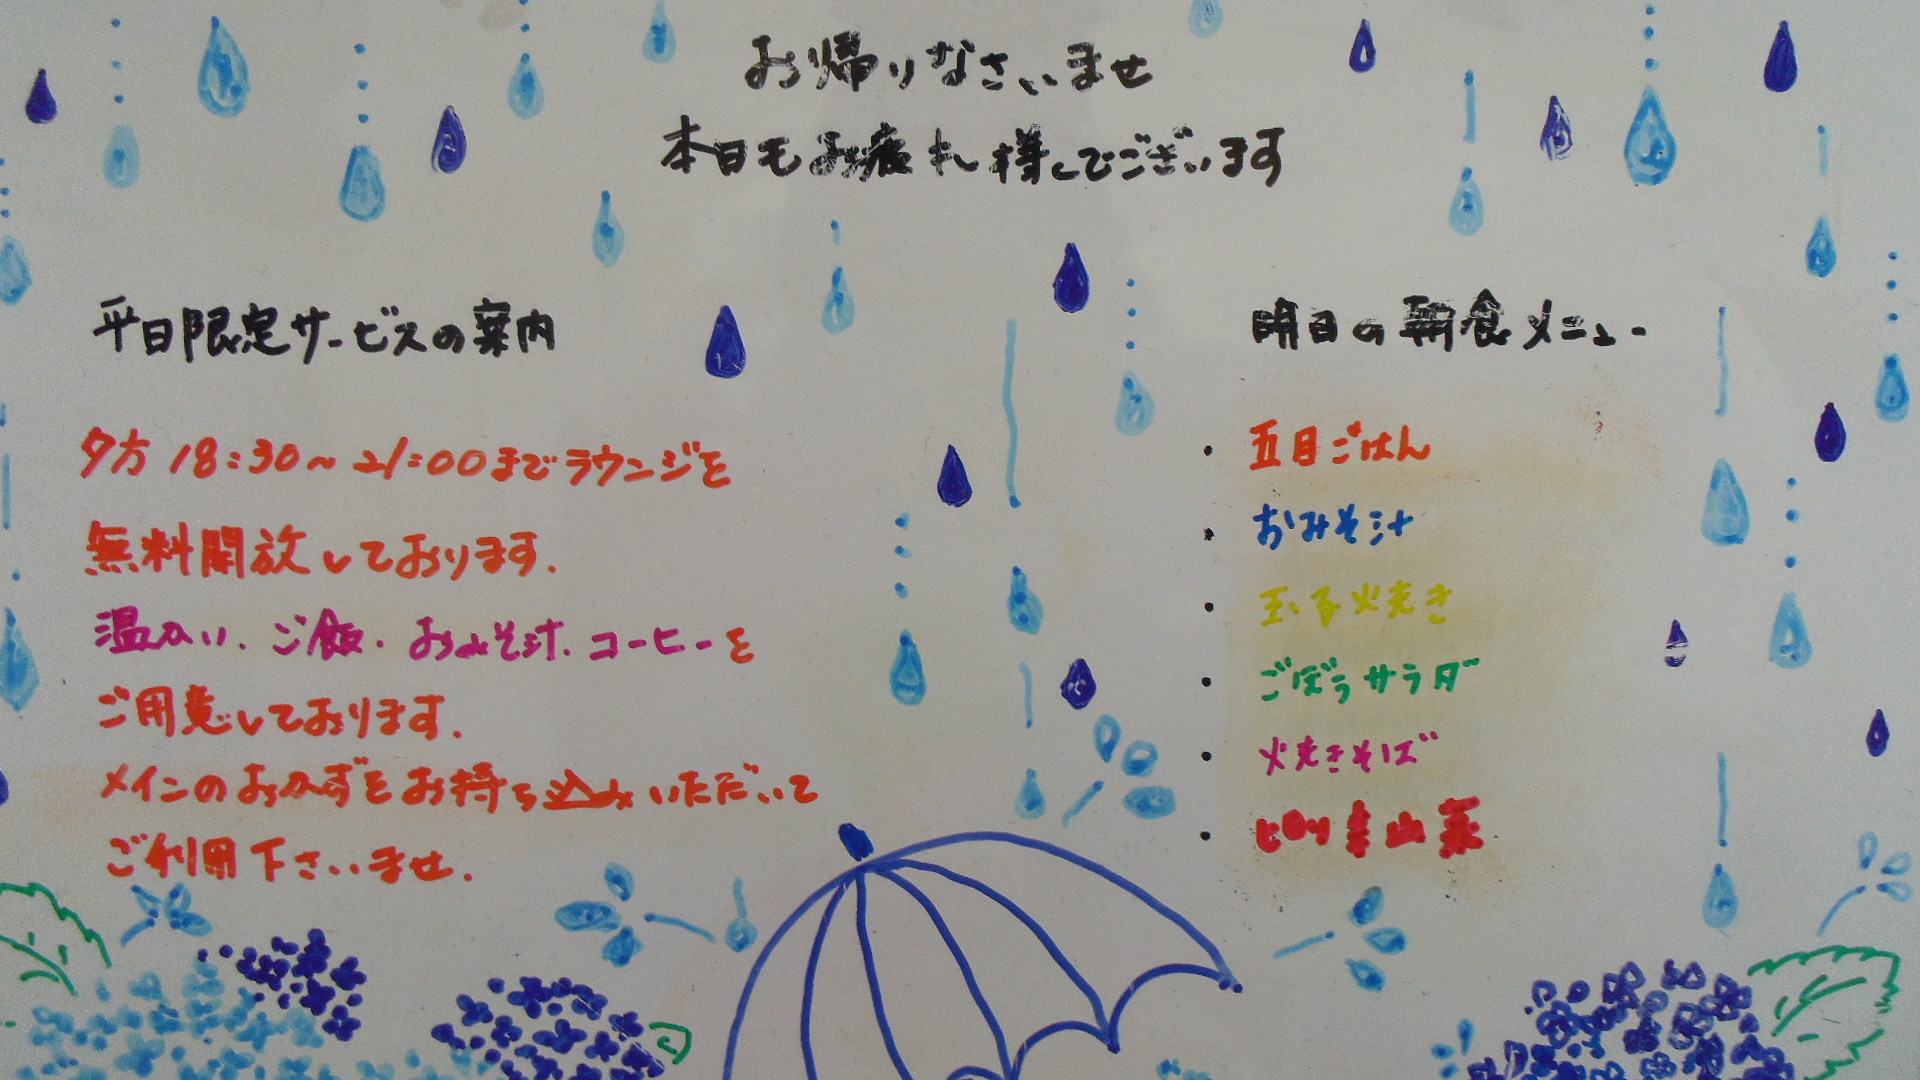 お帰りなさいませ
本日もお疲れ様でございます
平日限定サービスの案内
夕方18:30～21:00までラウンジを
無料開放しております.
温かい.ご飯.おみそ汁.コーヒーを
ご用意しております.
メインのおかずをお持ち込みいただいて
ご利用下さいませ.
明日の朝食メニュー
・五目ごはん
・おみそ汁
・玉子焼き
・ごぼうサラダ
・焼きそば